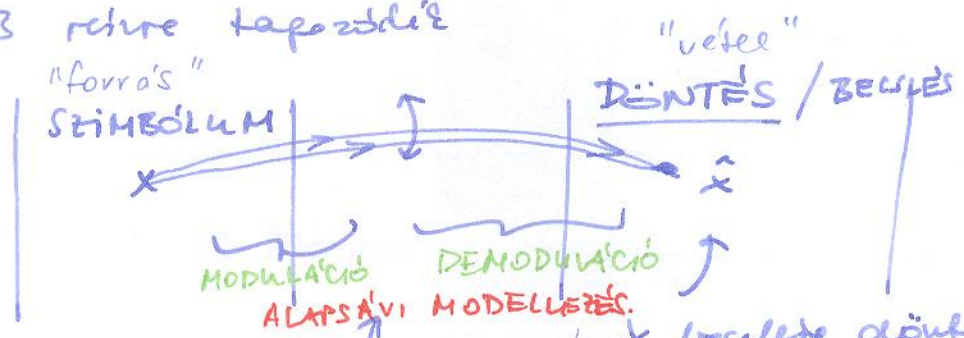 3 részre tagozódik
"forrás" "vétel"
SZIMBÓLUM DÖNTÉS / BECSLÉS
x x̂
MODULÁCIÓ DEMODULÁCIÓ
ALAPSÁVI MODELLEZÉS.